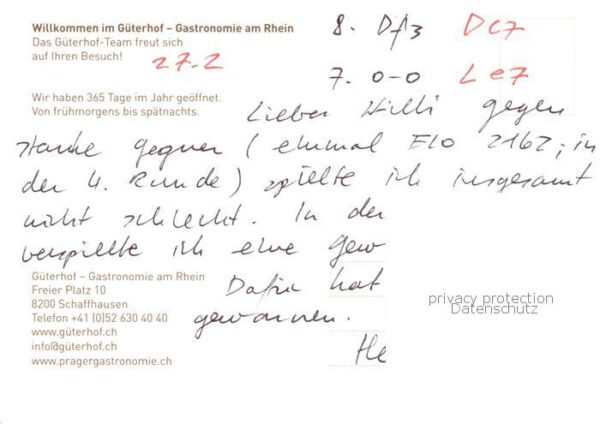 Willkommen im Güterhof – Gastronomie am Rhein
Das Güterhof-Team freut sich
auf Ihren Besuch!
27.2
8. Df3 Dc7
7. 0-0 Le7
Wir haben 365 Tage im Jahr geöffnet.
Von frühmorgens bis spätnachts.
Lieber Willi gegen
starke Gegner (einmal ELO 2162; in
der 4. Runde) spielte ich insgesamt
nicht schlecht. In der
verspielte ich eine Gew
Dafür hat
gewonnen.
He
Güterhof – Gastronomie am Rhein
Freier Platz 10
8200 Schaffhausen
Telefon +41 (0)52 630 40 40
www.güterhof.ch
info@güterhof.ch
www.pragergastronomie.ch
privacy protection
Datenschutz